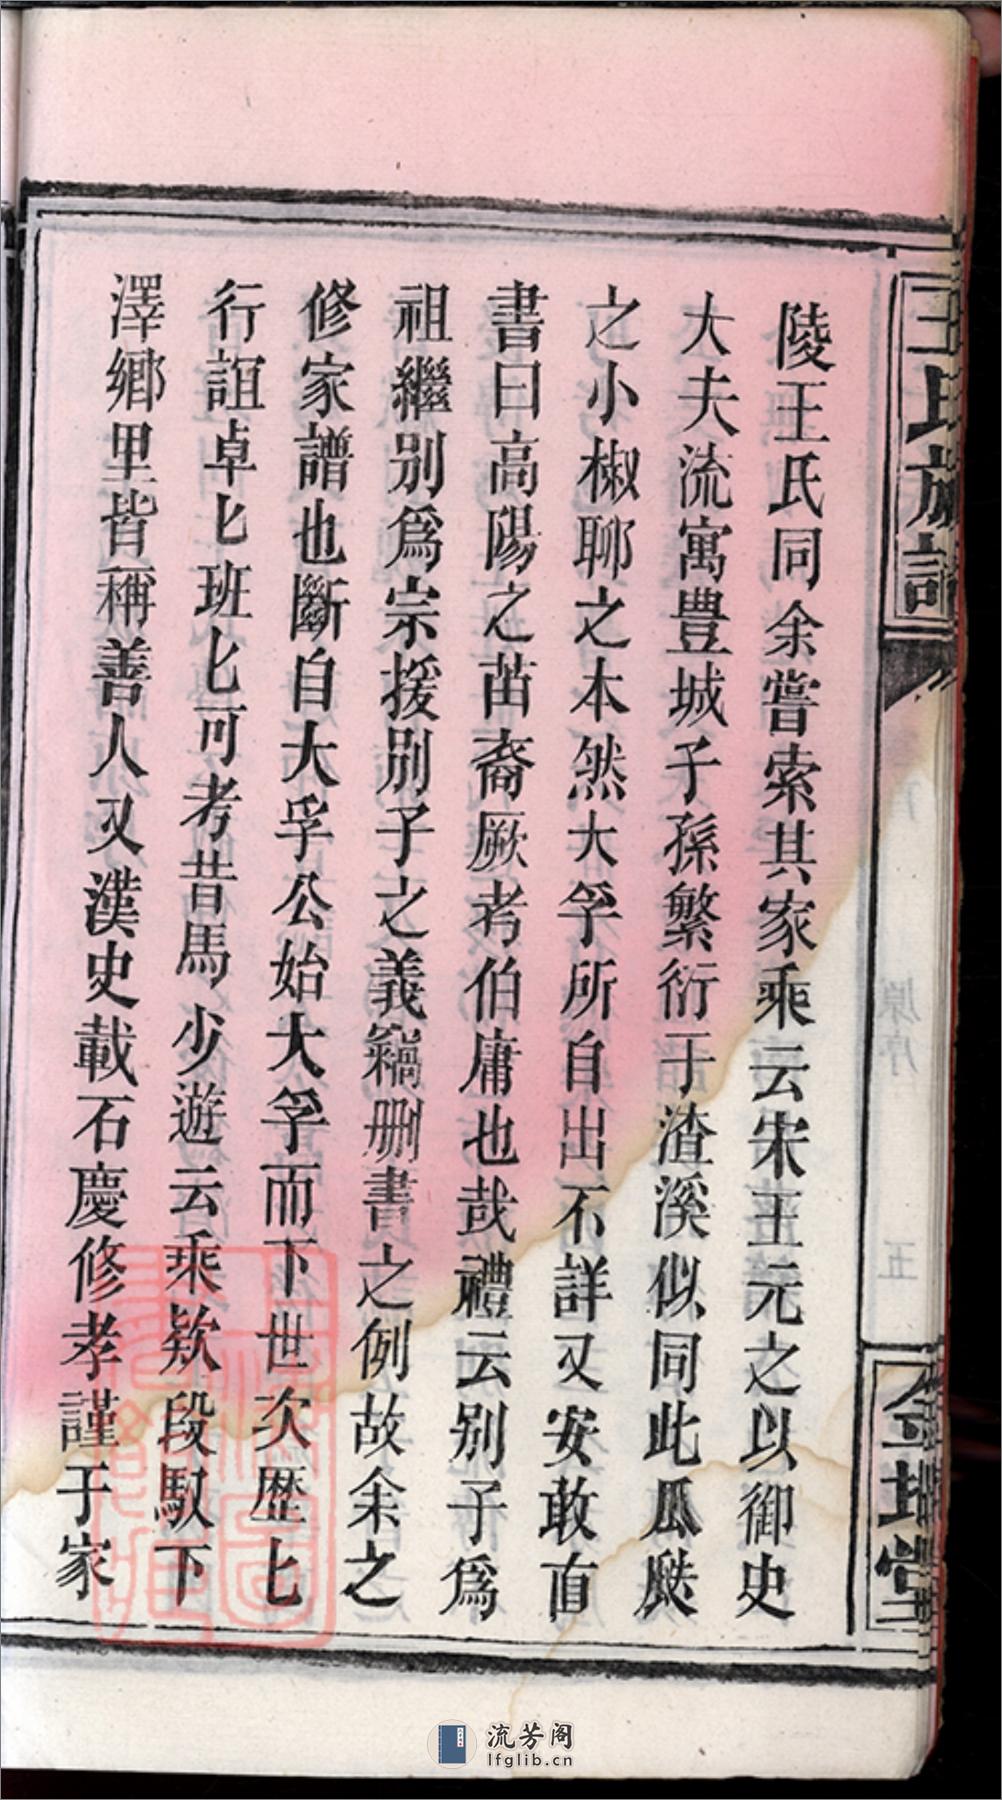 王氏族譜
陵王氏同余嘗索其家乘云宋王元之以御史
大夫流寓豊城子孫繁衍于渣溪似同此瓜瓞
之小椒聊之本然大孚所自出不詳又安敢直
書曰高陽之苗裔厥考伯庸也哉禮云别子爲
祖繼别爲宗援别子之義竊删書之例故余之
修家譜也斷自大孚公始大孚而下世次歴匕
行誼卓匕班匕可考昔馬少遊云乘欵段馭下
澤鄉里皆稱善人又漢史載石慶修孝謹于家
流芳阁
lfglib.cn